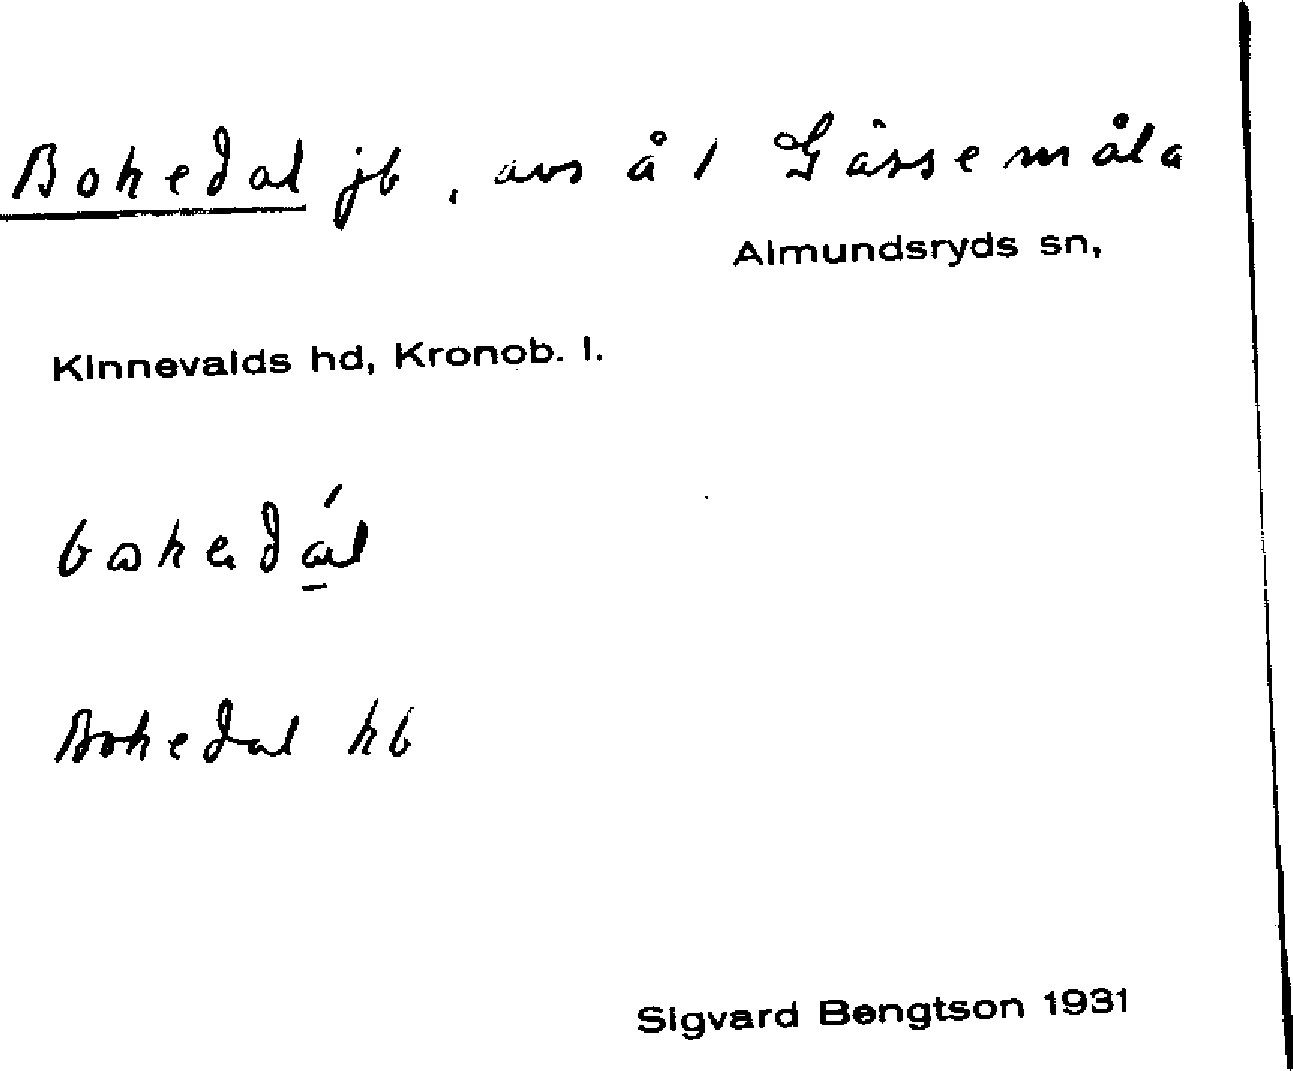 Bokedal jb, avs å 1 Gåssemåla
Almundsryds sn,
Kinnevalds hd, Kronob. l.
Bokedal hb
Sigvard Bengtson 1931